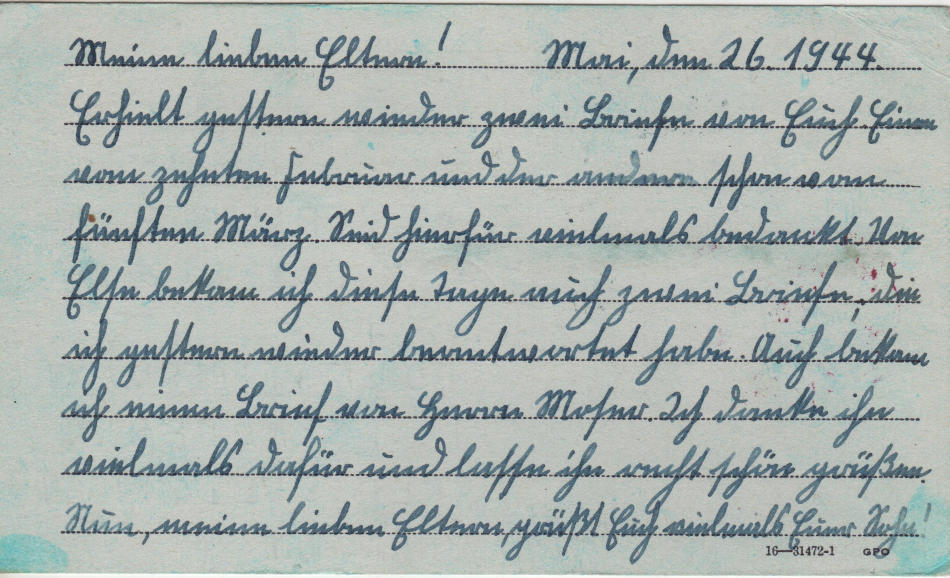 Meine lieben Eltern! Mai, den 26. 1944.
Erhielt gestern wieder zwei Briefe von Euch. Einen
vom zehnten Februar und der andere schon vom
fünften März. Seid hierfür vielmals bedankt. Von
Else bekam ich diese Tage auch zwei Briefe, die
ich gestern wieder beantwortet habe. Auch bekam
ich einen Brief von Herrn Moser. Ich danke ihn
vielmals dafür und lasse ihn recht schön grüßen.
Nun, meine lieben Eltern, grüßt Euch vielmals Euer Sohn!
16—31472-1 GPO